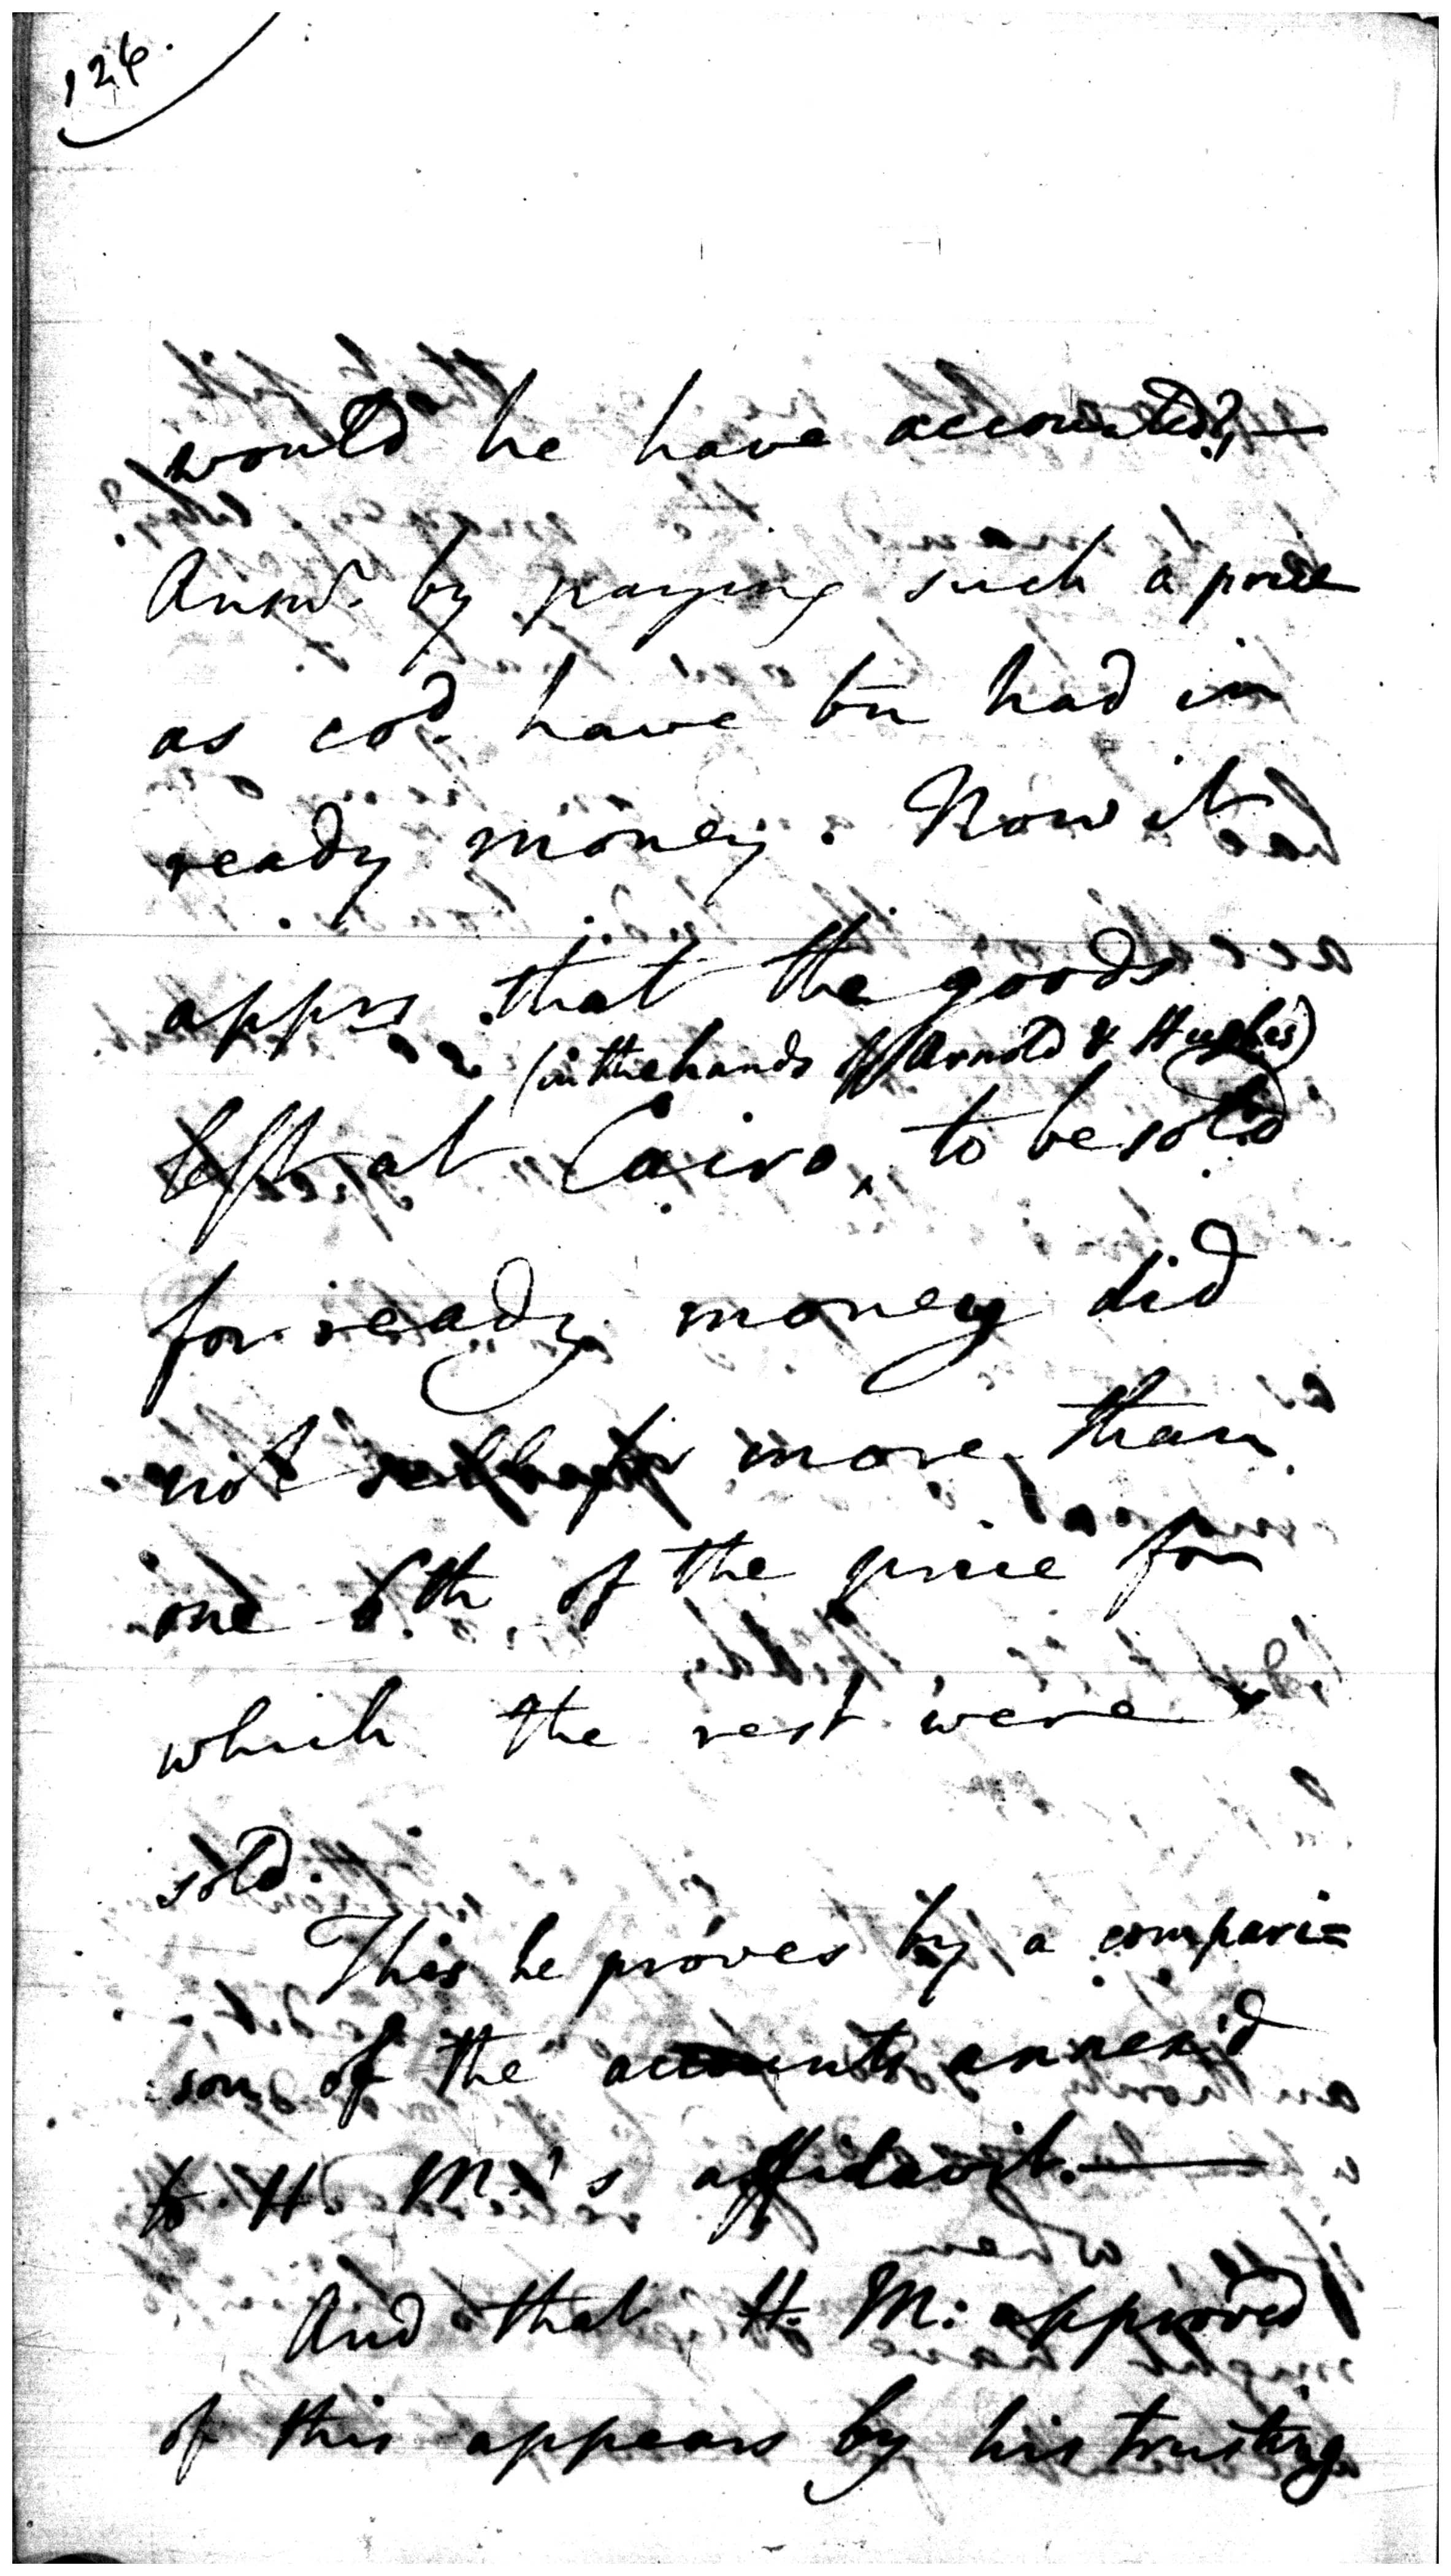 126.
would he have accounted? —
Answ.r by paying such a price
as cod. have bn had in
ready money. Now it
apprs that the goods
(in the hands of Arnold & Hughes)
left at Cairo, to be sold
for ready money did
not more than
one 6th of the price for
which the rest were
sold.
This he proves by a compari=
son of the accounts annex'd
to H M:'s affidavit. —
And that H. M: approved
of this appears by his trusting